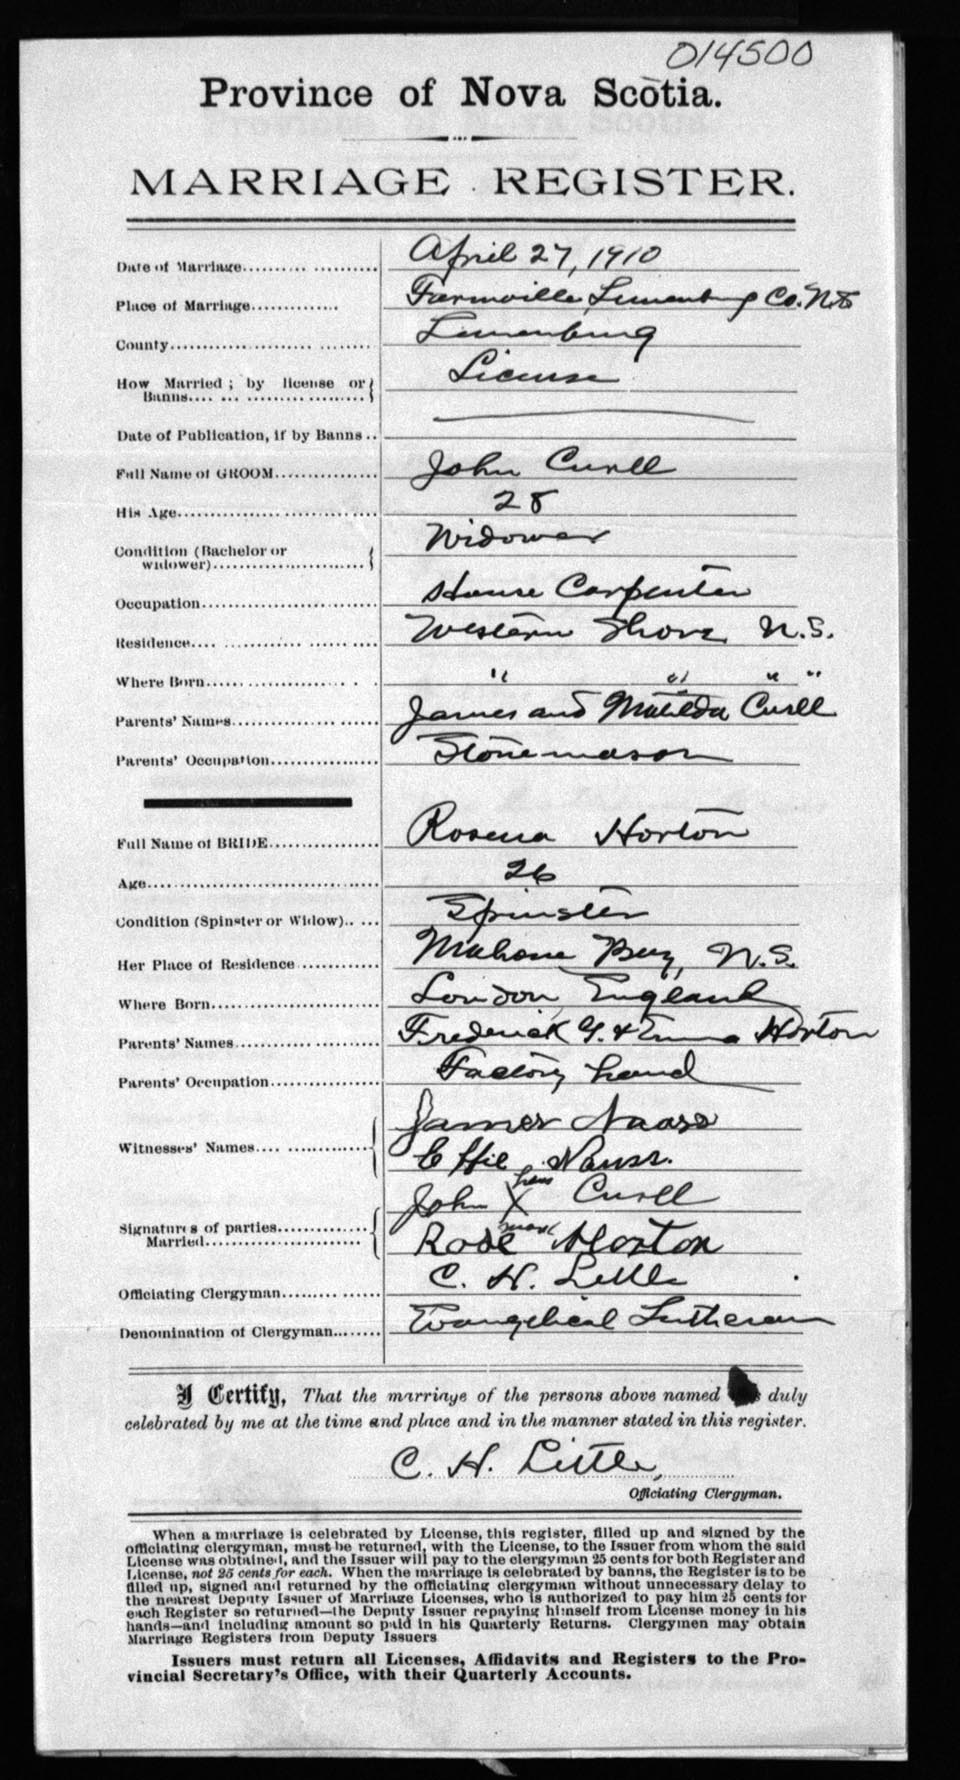 014500
Province of Nova Scotia.
MARRIAGE REGISTER.
Date of Marriage.......... ........... April 27, 1910
Place of Marriage............. Farmville, Lunenburg Co. N.S
County...................... ......... Lunenburg
How Married ; by license or Banns.... ... ................... License
Date of Publication, if by Banns ..
Full Name of GROOM............... John Curll
His Age.................. ............ 28
Condition (Bachelor or widower)....................... Widower
Occupation.......................... House Carpenter
Residence.... ............. ......... Western Shore, N.S.
Where Born...... ............ . . " " " "
Parents' Names................ ...... James and Matilda Curll
Parents' Occupation................. Stone mason
Full Name of BRIDE................ Rosena Horton
Age.................................. 26
Condition (Spinster or Widow).. ... Spinster
Her Place of Residence ............ Mahone Bay, N.S.
Where Born......................... London, England
Parents' Names.............. ....... Frederick G. & Emma Horton
Parents' Occupation................ Factory hand
Witnesses' Names.... ............. James Naass
Effie Nauss.
Signatures of parties............. Married....................... John his X mark Curll
Rose Horton
Officiating Clergyman....... ....... C. H. Little
Denomination of Clergyman......... Evangelical Lutheran
I Certify, That the marriage of the persons above named duly
celebrated by me at the time and place and in the manner stated in this register.
C. H. Little,
Officiating Clergyman.
When a marriage is celebrated by License, this register, filled up and signed by the
officiating clergyman, must be returned, with the License, to the Issuer from whom the said
License was obtained, and the Issuer will pay to the clergyman 25 cents for both Register and
License, not 25 cents for each. When the marriage is celebrated by banns, the Register is to be
filled up, signed and returned by the officiating clergyman without unnecessary delay to
the nearest Deputy Issuer of Marriage Licenses, who is authorized to pay him 25 cents for
each Register so returned—the Deputy Issuer repaying himself from License money in his
hands—and including amount so paid in his Quarterly Returns. Clergymen may obtain
Marriage Registers from Deputy Issuers
Issuers must return all Licenses, Affidavits and Registers to the Pro-
vincial Secretary's Office, with their Quarterly Accounts.